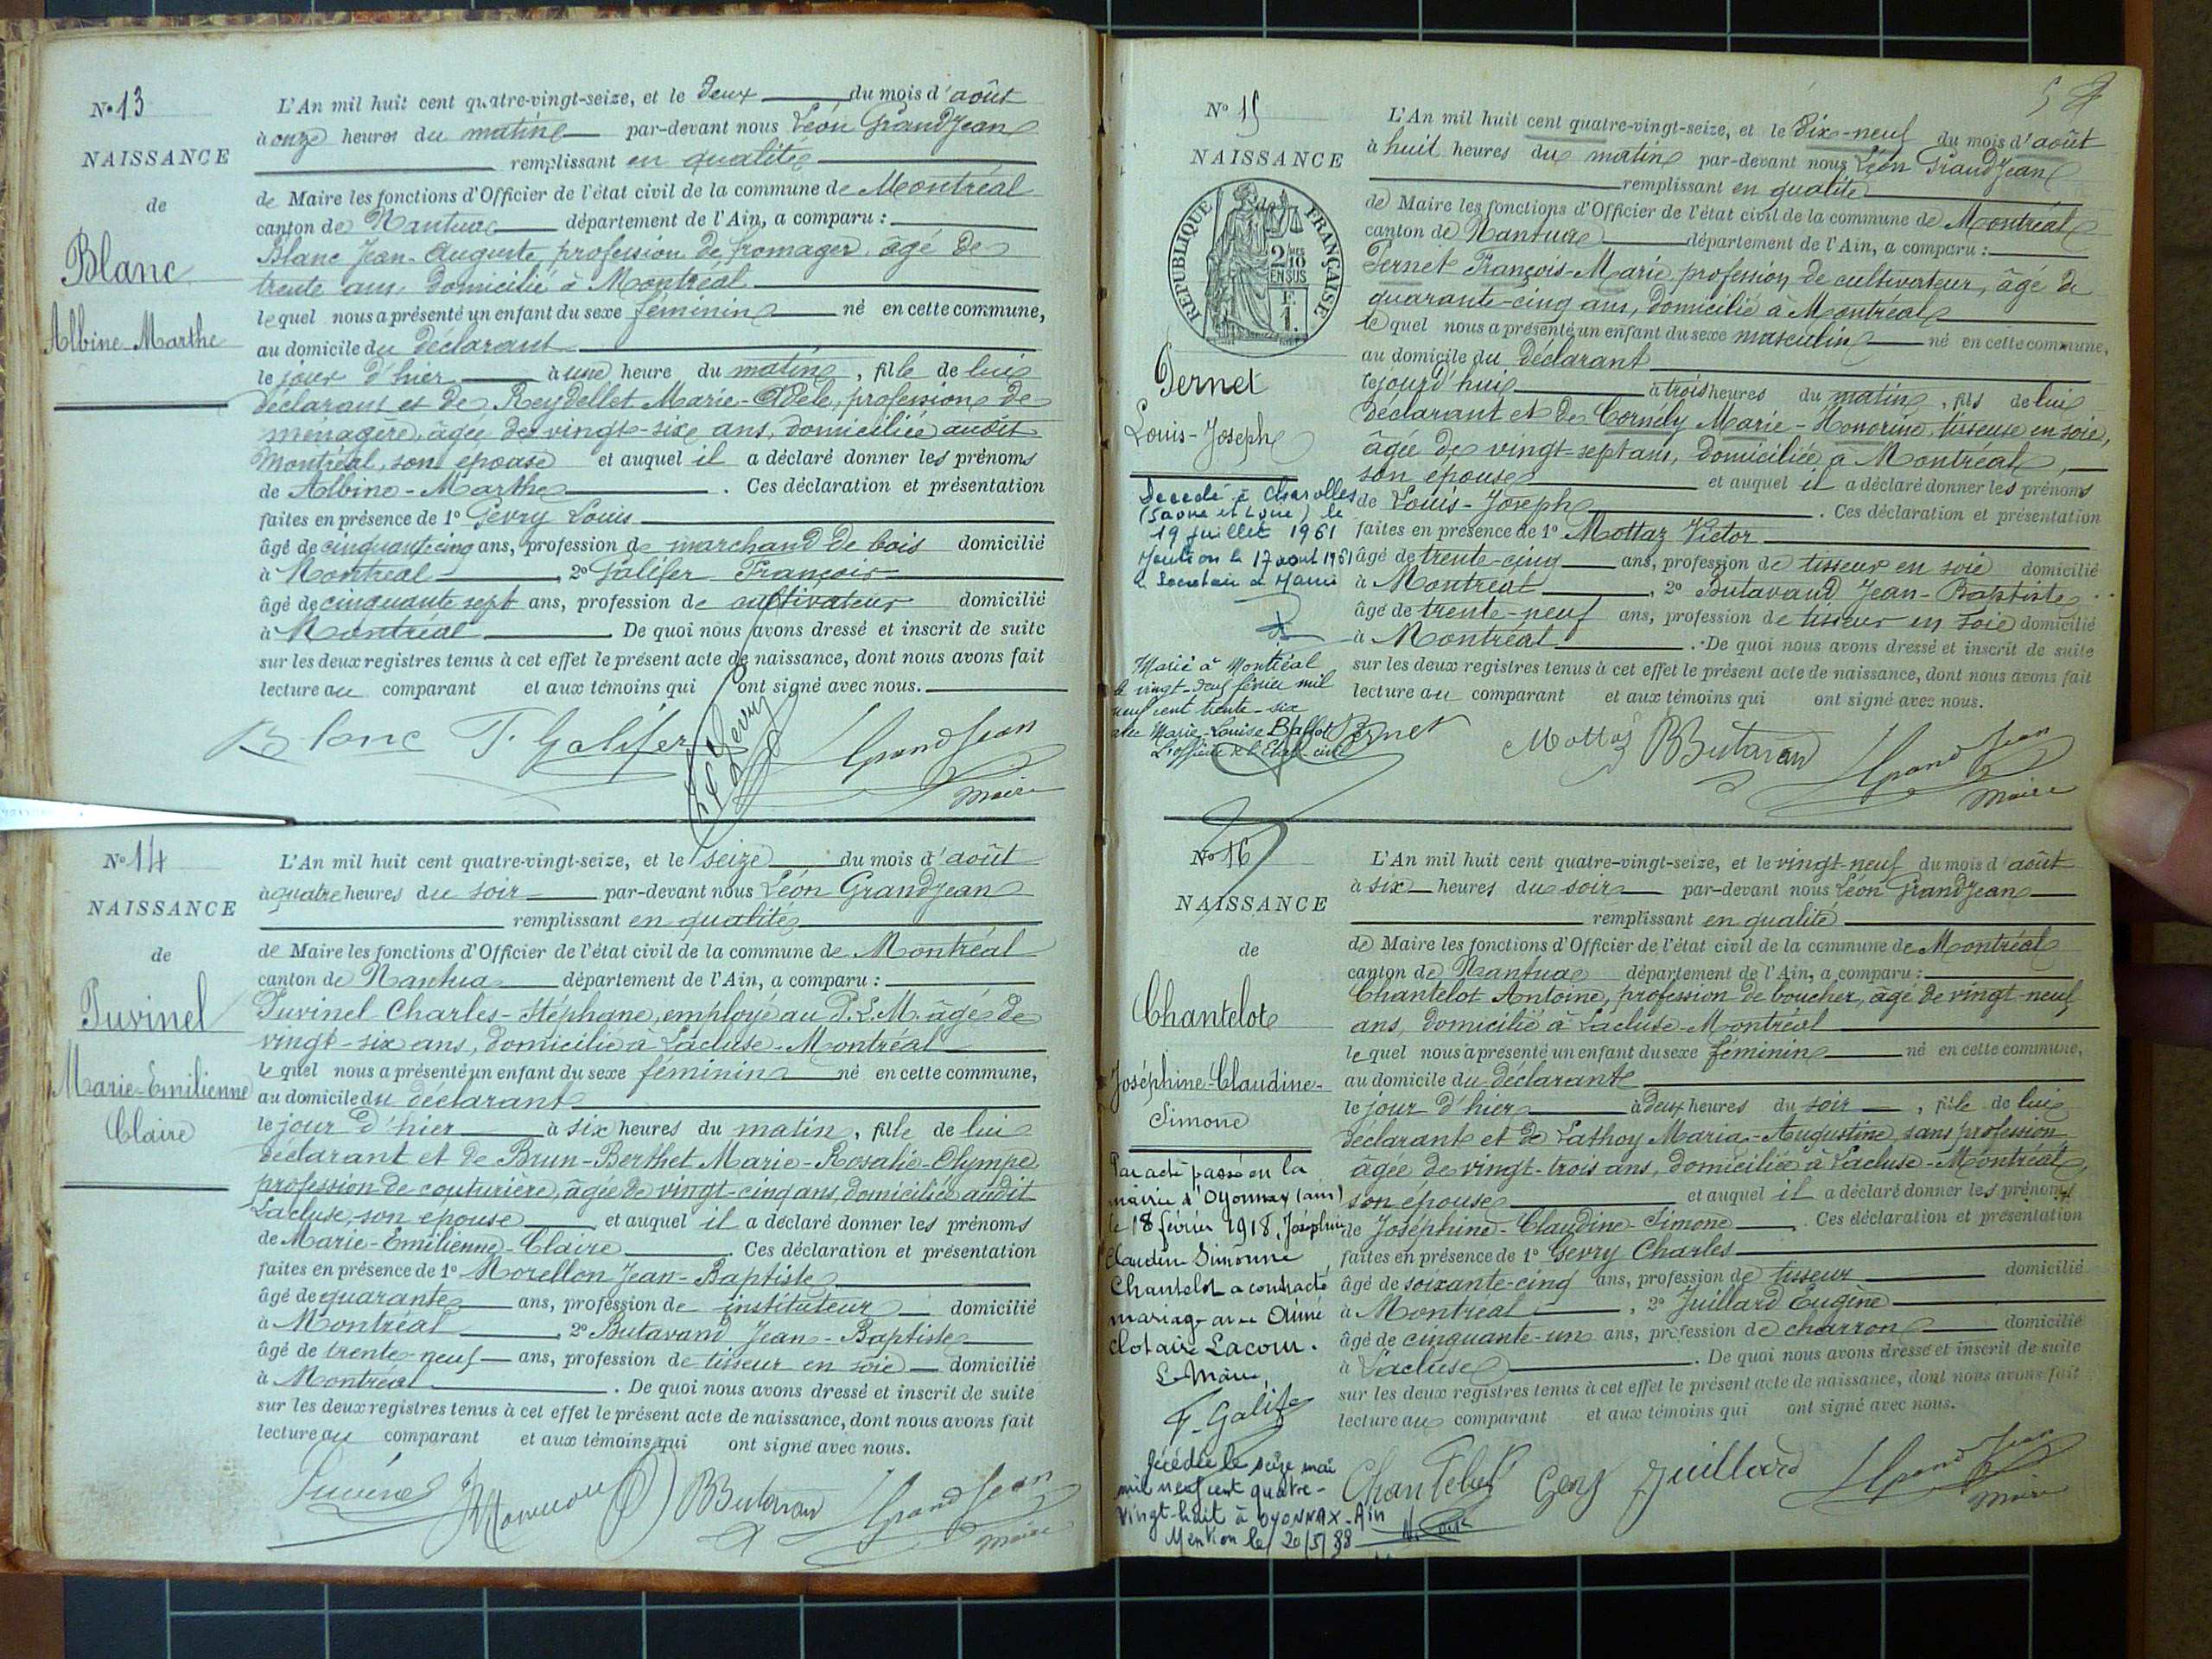 N° 13
NAISSANCE
de
Blanc
Albine-Marthe
L'An mil huit cent quatre-vingt-seize, et le deux du mois d'août
à onze heures du matin par-devant nous Léon Grandjean
remplissant en qualité
de Maire les fonctions d'Officier de l'état civil de la commune de Montréal
canton de Nantua département de l'Ain, a comparu :
Blanc Jean-Auguste, profession de fromager, âgé de
trente ans, domicilié à Montréal
lequel nous a présenté un enfant du sexe féminin né en cette commune,
au domicile du déclarant
le jour d'hier à une heure du matin, fille de lui
déclarant et de Reydellet Marie-Adèle, profession de
ménagère, âgée de vingt-six ans, domiciliée audit
Montréal, son épouse et auquel il a déclaré donner les prénoms
de Albine-Marthe. Ces déclaration et présentation
faites en présence de 1° Gevry Louis
âgé de cinquante cinq ans, profession de marchand de bois domicilié
à Montréal, 2° Galifer François
âgé de cinquante sept ans, profession de cultivateur domicilié
à Montréal. De quoi nous avons dressé et inscrit de suite
sur les deux registres tenus à cet effet le présent acte de naissance, dont nous avons fait
lecture au comparant et aux témoins qui ont signé avec nous.
Blanc F. Galifer Gevry Grandjean
Maire
N° 14
NAISSANCE
de
Juvinel
Marie-Emilienne
Claire
L'An mil huit cent quatre-vingt-seize, et le seize du mois d'août
à quatre heures du soir par-devant nous Léon Grandjean
remplissant en qualité
de Maire les fonctions d'Officier de l'état civil de la commune de Montréal
canton de Nantua département de l'Ain, a comparu :
Juvinel Charles-Stéphane, employé au P.L.M. âgé de
vingt-six ans, domicilié à Lacluse-Montréal
lequel nous a présenté un enfant du sexe féminin né en cette commune,
au domicile du déclarant
le jour d'hier à six heures du matin, fille de lui
déclarant et de Brun-Berthet Marie-Rosalie-Olympe,
profession de couturière, âgée de vingt-cinq ans, domiciliée audit
Lacluse, son épouse et auquel il a déclaré donner les prénoms
de Marie-Emilienne-Claire. Ces déclaration et présentation
faites en présence de 1° Morellon Jean-Baptiste
âgé de quarante ans, profession de instituteur domicilié
à Montréal, 2° Butavand Jean-Baptiste
âgé de trente-neuf ans, profession de tisseur en soie domicilié
à Montréal. De quoi nous avons dressé et inscrit de suite
sur les deux registres tenus à cet effet le présent acte de naissance, dont nous avons fait
lecture au comparant et aux témoins qui ont signé avec nous.
Juvinel BButavand Grandjean
Maire
N° 15
NAISSANCE
de
RÉPUBLIQUE FRANÇAISE
2/10 EN SUS
F.
1.
Pernet
Louis-Joseph
Décédé à Charolles
(Saone et Loire) le
19 juillet 1961
Mention le 17 aout 1961
le Secrétaire de Mairie
Marié à Montréal
le vingt-deux février mil
neuf cent trente-six
avec Marie-Louise Ballot
L'officier de l'Etat civil
L'An mil huit cent quatre-vingt-seize, et le dix-neuf du mois d'août
à huit heures du matin par-devant nous Léon Grandjean
remplissant en qualité
de Maire les fonctions d'Officier de l'état civil de la commune de Montréal
canton de Nantua département de l'Ain, a comparu :
Pernet François-Marie, profession de cultivateur, âgé de
quarante-cinq ans, domicilié à Montréal
lequel nous a présenté un enfant du sexe masculin né en cette commune,
au domicile du déclarant
cejourd'hui à trois heures du matin, fils de lui
déclarant et de Cornély Marie-Honorine, tisseuse en soie,
âgée de vingt-sept ans, domiciliée à Montréal,
son épouse et auquel il a déclaré donner les prénoms
de Louis-Joseph. Ces déclaration et présentation
faites en présence de 1° Mottaz Victor
âgé de trente-cinq ans, profession de tisseur en soie domicilié
à Montréal, 2° Butavand Jean-Baptiste
âgé de trente-neuf ans, profession de tisseur en soie domicilié
à Montréal. De quoi nous avons dressé et inscrit de suite
sur les deux registres tenus à cet effet le présent acte de naissance, dont nous avons fait
lecture au comparant et aux témoins qui ont signé avec nous.
Pernet Mottaz BButavand Grandjean
Maire
N° 16
NAISSANCE
de
Chantelot
Joséphine-Claudine-
Simone
Par acte passé en la
mairie d'Oyonnax (ain)
le 18 février 1918, Joséphine
Claudine Simonne
Chantelot a contracté
mariage avec Aimé
Clotaire Lacour.
Le Maire,
F. Galifer
Décédée le seize mai
mil neuf cent quatre-
vingt-huit à OYONNAX-Ain
Mention le 20/5/88
L'An mil huit cent quatre-vingt-seize, et le vingt-neuf du mois d'août
à six heures du soir par-devant nous Léon Grandjean
remplissant en qualité
de Maire les fonctions d'Officier de l'état civil de la commune de Montréal
canton de Nantua département de l'Ain, a comparu :
Chantelot Antoine, profession de boucher, âgé de vingt-neuf
ans, domicilié à Lacluse-Montréal
lequel nous a présenté un enfant du sexe féminin né en cette commune,
au domicile du déclarant
le jour d'hier à deux heures du soir, fille de lui
déclarant et de Lathoy Maria-Augustine, sans profession
âgée de vingt-trois ans, domiciliée à Lacluse-Montréal,
son épouse et auquel il a déclaré donner les prénoms
de Joséphine-Claudine-Simone. Ces déclaration et présentation
faites en présence de 1° Gevry Charles
âgé de soixante-cinq ans, profession de tisseur domicilié
à Montréal, 2° Juillard Eugène
âgé de cinquante-un ans, profession de charron domicilié
à Lacluse. De quoi nous avons dressé et inscrit de suite
sur les deux registres tenus à cet effet le présent acte de naissance, dont nous avons fait
lecture au comparant et aux témoins qui ont signé avec nous.
Chantelot Gevry Juillard Grandjean
Maire